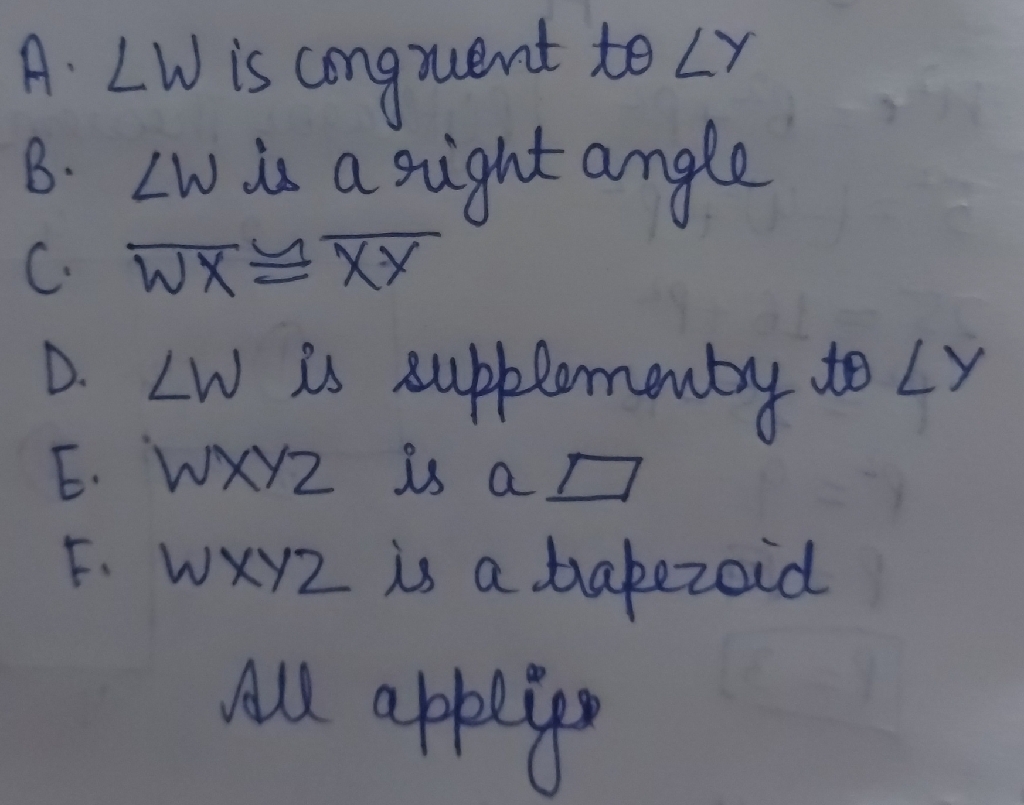 A. ∠W is congruent to ∠Y
B. ∠W is a right angle
C. W̅X̅ ≅ X̅Y̅
D. ∠W is supplementry to ∠Y
E. WXYZ is a ▱
F. WXYZ is a trapezoid
All applys